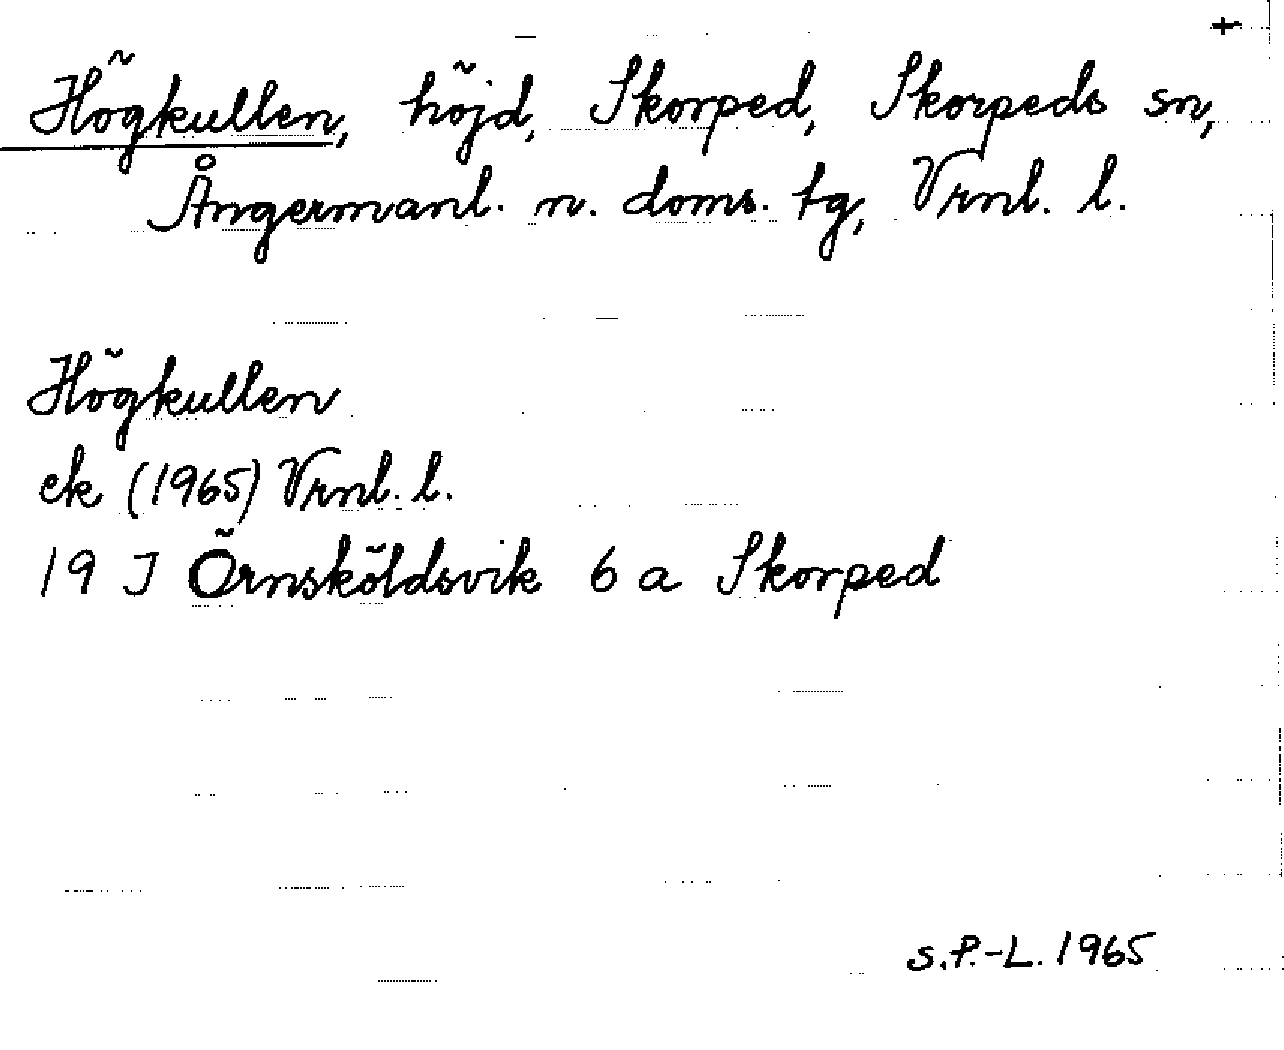 +
Högkullen, höjd, Skorped, Skorpeds sn,
Ångermanl. n. doms. tg, Vrnl. l.
Högkullen
ek (1965) Vrnl. l.
19 J Örnsköldsvik 6 a Skorped
s.P.-L. 1965